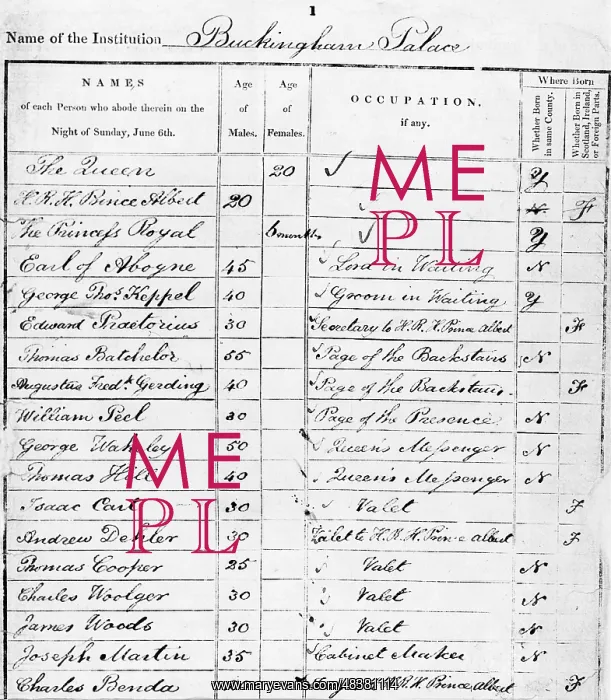 1
Name of the Institution Buckingham Palace
NAMES of each Person who abode therein on the Night of Sunday, June 6th. Age of Males. Age of Females. OCCUPATION, if any. Where Born Whether Born in same County. Whether Born in Scotland, Ireland, or Foreign Parts.
The Queen 20 Y
H.R.H. Prince Albert 20 N. F
The Princess Royal 6 months Y
Earl of Aboyne 45 Lord in Waiting N
George Thos. Keppel 40 Groom in Waiting Y
Edward Praetorius 30 Secretary to H.R.H. Prince Albert F
Thomas Batchelor 55 Page of the Backstairs N
Augustus Fredk Gerding 40 Page of the Backstairs. F
William Peel 30 Page of the Presence N
George 50 Queen's Messenger N
Thomas Hill 40 Queen's Messenger N
Isaac Cart 30 Valet F
Andrew 30 Valet to H.R.H. Prince Albert F
Thomas Cooper 25 Valet N
Charles Woolger 30 Valet N
James Woods 30 Valet N
Joseph Martin 35 Cabinet Maker N
Charles Benda R.H. Prince Albert F
ME
PL
ME
PL
www.maryevans.com/48381114